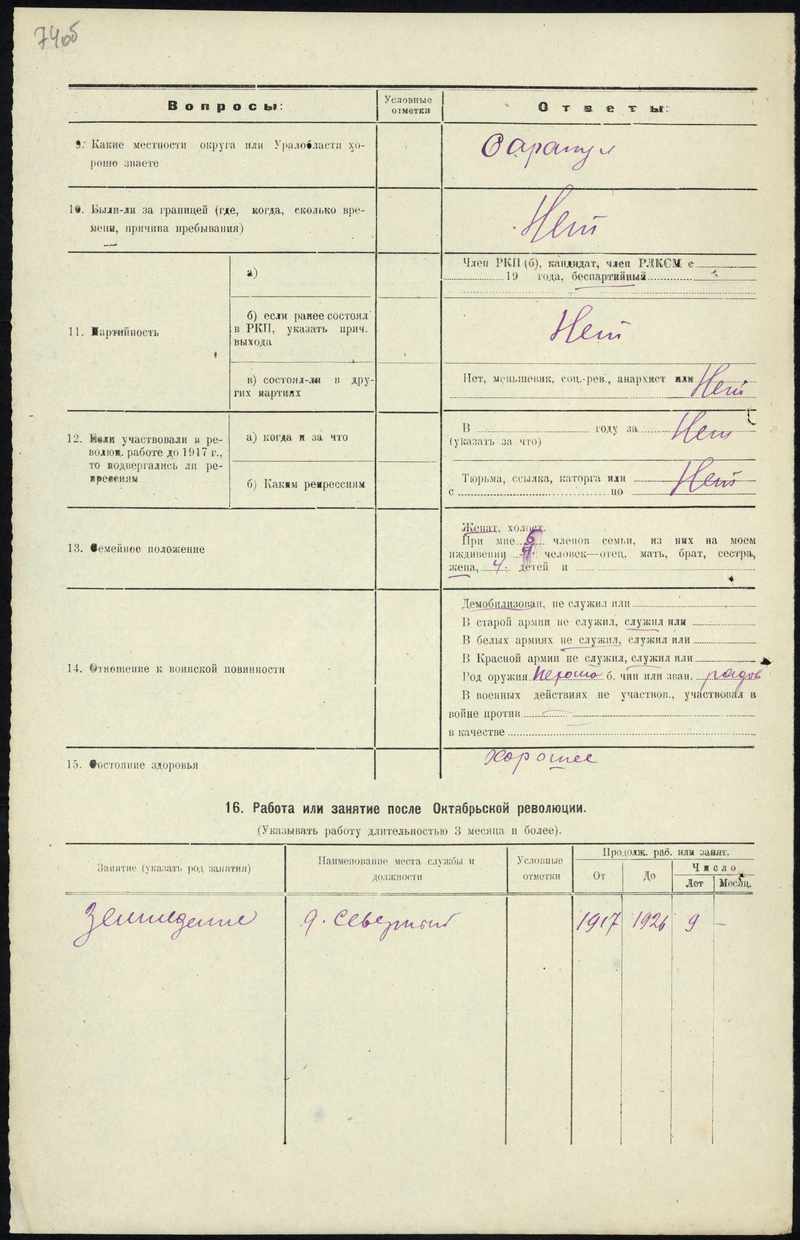 74об
Вопросы:
Условные отметки
Ответы:
9. Какие местности округа или Уралобласти хо-
рошо знаете
Сарапул
10. Были-ли за границей (где, когда, сколько вре-
мени, причина пребывания)
Нет
11. Партийность
а)
Член РКП (б), кандидат, член РЛКСМ с
19 года, беспартийный
б) если ранее состоял
в РКП, указать прич.
выхода
Нет
в) состоял-ли в дру-
гих партиях
Нет, меньшевик, соц.-рев., анархист или Нет
12. Если участвовали в ре-
волюц. работе до 1917 г.,
то подвергались ли ре-
прессиям
а) когда и за что
В году за Нет
(указать за что)
б) Каким репрессиям
Тюрьма, ссылка, каторга или Нет
с по
13. Семейное положение
Женат, холост.
При мне 6 членов семьи, из них на моем
иждивении человек—отец, мать, брат, сестра,
жена, 4 детей и
14. Отношение к воинской повинности
Демобилизован, не служил или
В старой армии не служил, служил или
В белых армиях не служил, служил или
В Красной армии не служил, служил или
Род оружия б. чин или зван. рядов
В военных действиях не участвов., участвовал в
войне против
в качестве
15. Состояние здоровья
Хорошее
16. Работа или занятие после Октябрьской революции.
(Указывать работу длительностью 3 месяца и более).
Занятие (указать род занятия)
Наименование места службы и
должности
Условные
отметки
Продолж. раб. или занят.
От
До
Число
Лет
Месяц.
д. 1917 1926 9 —